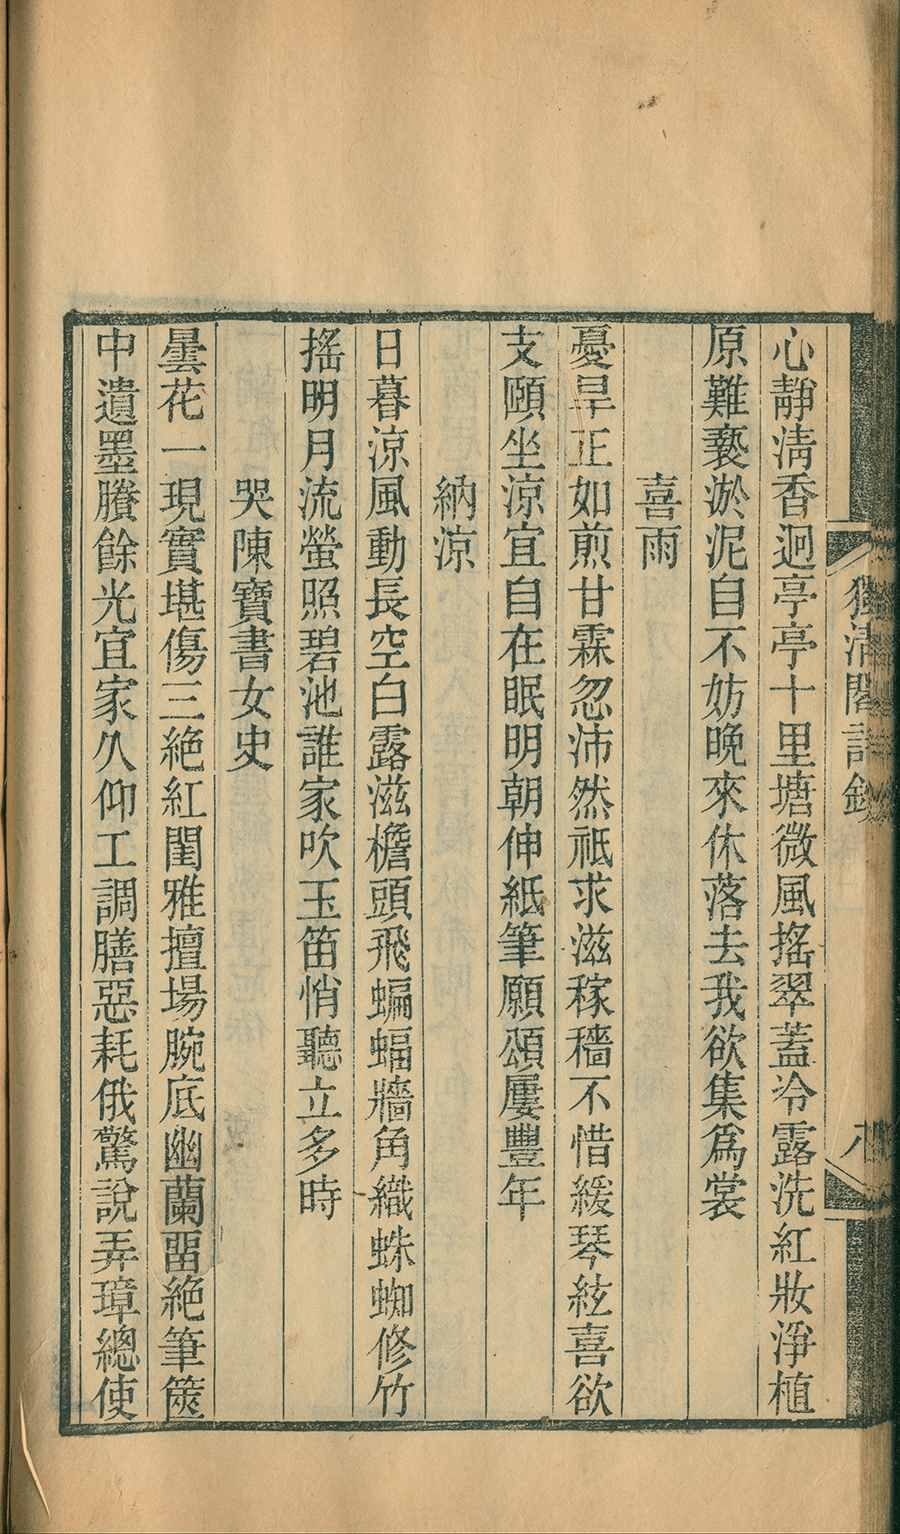 獨清閣詩鈔
八
心靜淸香迥亭亭十里塘微風搖翠蓋冷露洗紅妝淨植
原難褻淤泥自不妨晚來休落去我欲集爲裳
喜雨
憂旱正如煎甘霖忽沛然祗求滋稼穡不惜緩琴絃喜欲
支頤坐涼宜自在眠明朝伸紙筆願頌屢豐年
納涼
日暮涼風動長空白露滋檐頭飛蝙蝠牆角織蛛蜘修竹
搖明月流螢照碧池誰家吹玉笛悄聽立多時
哭陳寶書女史
曇花一現實堪傷三絶紅閨雅擅場腕底幽蘭畱絶筆篋
中遺墨賸餘光宜家久仰工調膳惡耗俄驚說弄璋總使